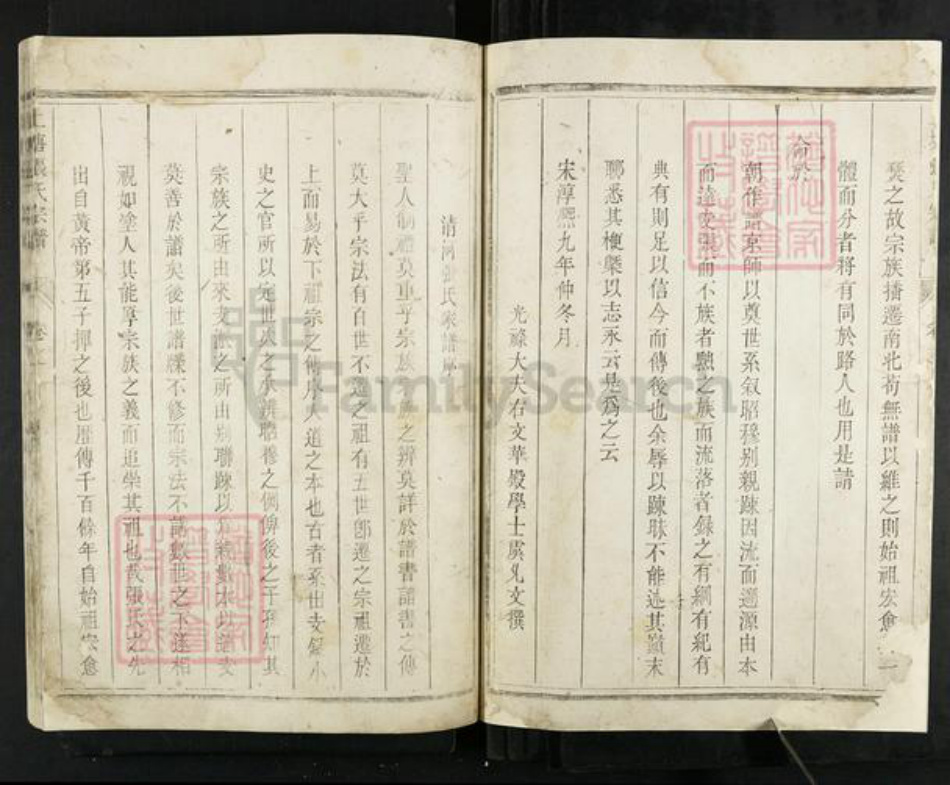 裦之故宗族播遷南北苟無譜以維之則始祖宏愈一
體而分者將有同於路人也用是請
命於
朝作譜京師以奠世系叙昭穆别親踈因流而遡源由本
而達支張而不族者黜之族而流落者録之有綱有紀有
典有則足以信今而傳後也余辱以踈昧不能述其顛末
聊悉其梗槩以志永云是爲之云
宋淳熙九年仲冬月
光祿大夫右文華殿學士虞允文撰
清河張氏宗譜序
聖人制禮莫重乎宗族宗族之辨莫詳於譜書譜書之傳
莫大乎宗法有百世不遷之祖有五世卽遷之宗祖遷於
上而易於下祖宗之傳序人道之本也古者系出支録小
史之官所以定世系之承辨昭穆之倘俾後之子孫知其
宗族之所由來支派之所由别聯踈以
莫善於譜矣後世譜牒不修而宗法不講數世之下遂相
視如塗人其能厚宗族之義而追崇其祖也哉張氏之先
出自黃帝第五子揮之後也歷傳千百餘年自始祖宏愈
張氏宗譜
FamilySearch